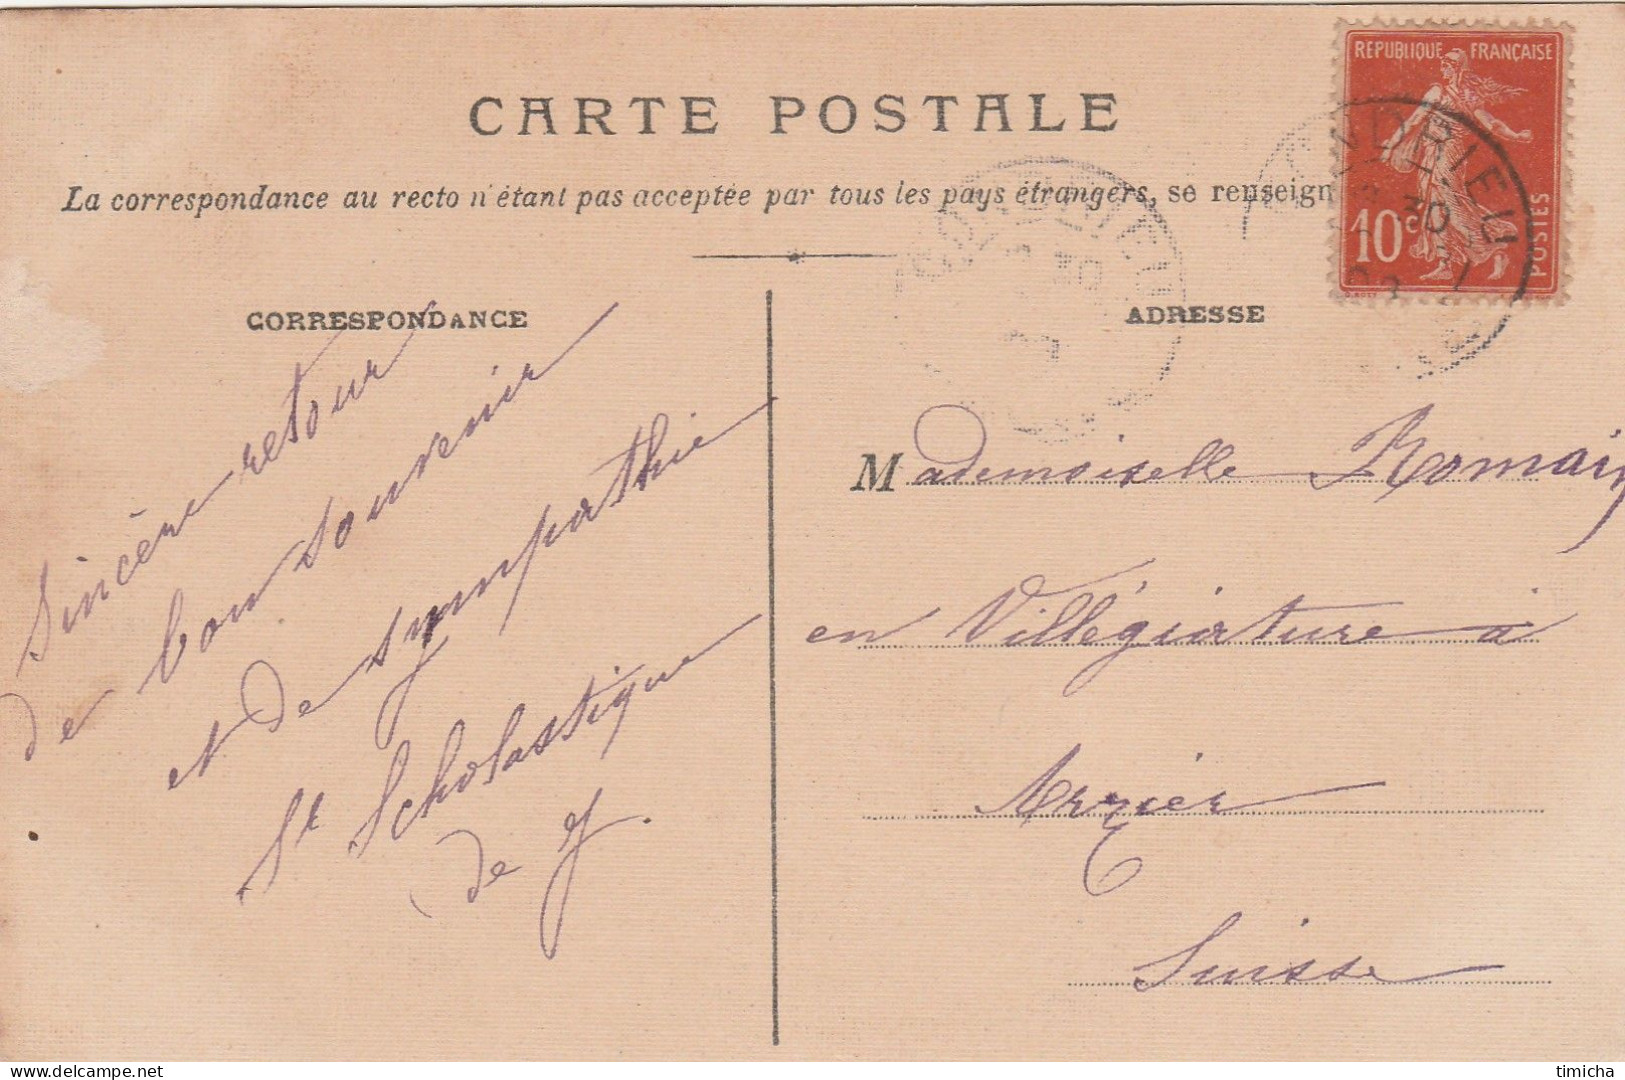 CARTE POSTALE
La correspondance au recto n'étant pas acceptée par tous les pays étrangers, se renseign
REPUBLIQUE FRANÇAISE
10c
POSTES
CORRESPONDANCE
ADRESSE
Sincère retour
de bon souvenir
et de sympathie
St Scholastique
de J.
Mademoiselle Romain
en Villégiature à
Arzier
Suisse
www.delcampe.net
timicha